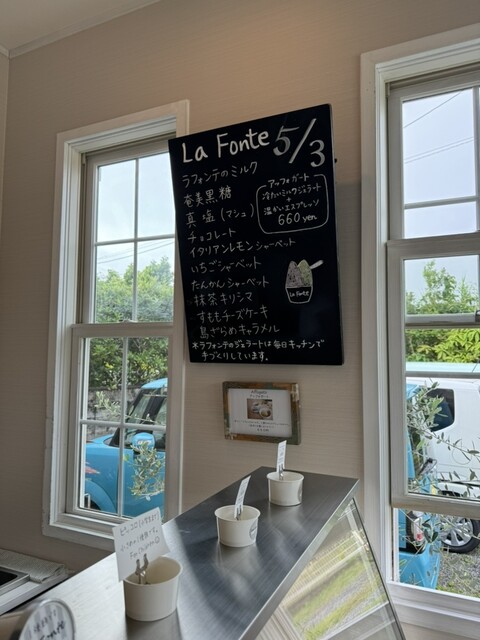 La Fonte 5/3
ラフォンテのミルク
奄美黒糖
真塩(マシュ)
チョコレート
イタリアンレモンシャーベット
いちごシャーベット
たんかんシャーベット
抹茶キリシマ
すももチーズケーキ
島ざらめキャラメル
※ラフォンテのジェラートは毎日キッチンで
手づくりしています。
アッフォガート
冷たいミルクジェラート
+
温かいエスプレッソ
660yen
La Fonte